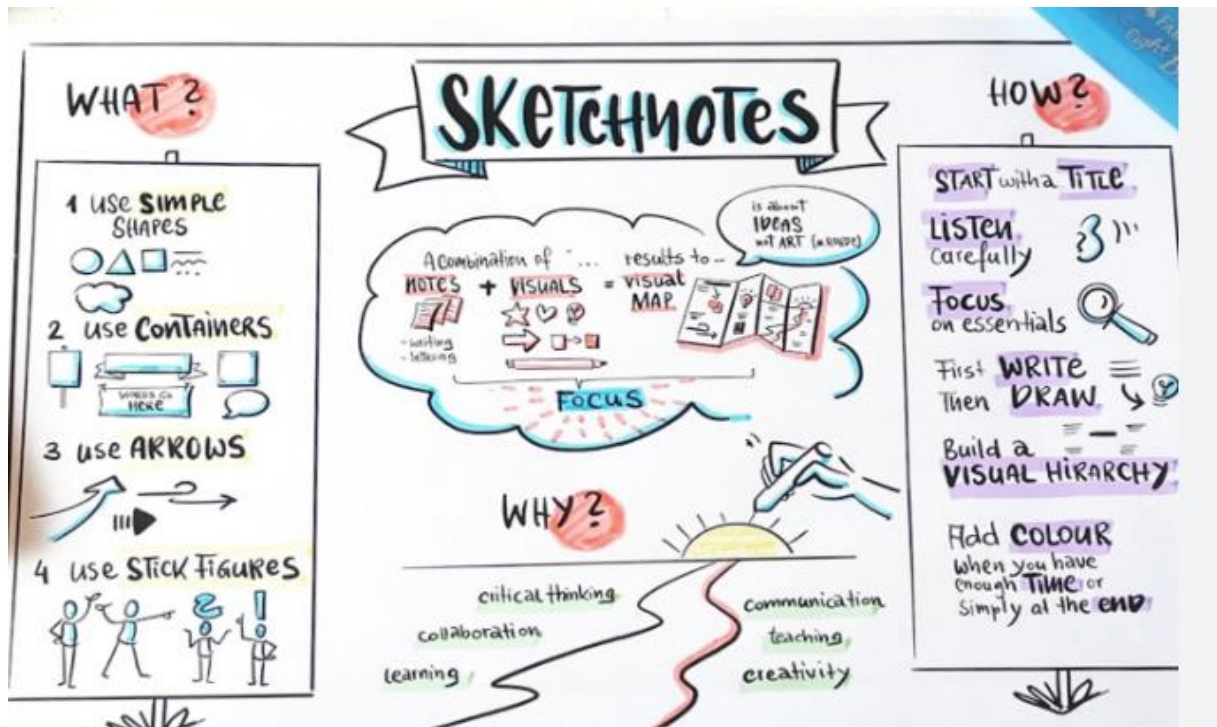 SKETCHNOTES
WHAT?
1 USE SIMPLE
SHAPES
2 use CONTAINERS
WORDS GO
HERE
3 use ARROWS
4 use STICK FIGURES
A Combination of ....
NOTES + VISUALS
- writing
- lettering
results to...
= visual
MAP
is about
IDEAS
not ART
FOCUS
WHY?
critical thinking
collaboration
learning
communication
teaching
creativity
HOW?
START with a TITLE
LISTEN
Carefully
FOCUS
on essentials
First WRITE
Then DRAW
Build a
VISUAL HIRARCHY
Add COLOUR
when you have
enough TIME or
Simply at the END